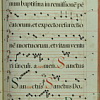 num baptisma in remissionem pec
catorum. et expecto resurrectio
nem mortuorum. et vitam ventu
ri seculi. amen. Sanctus
Sanctus Sanctus Do